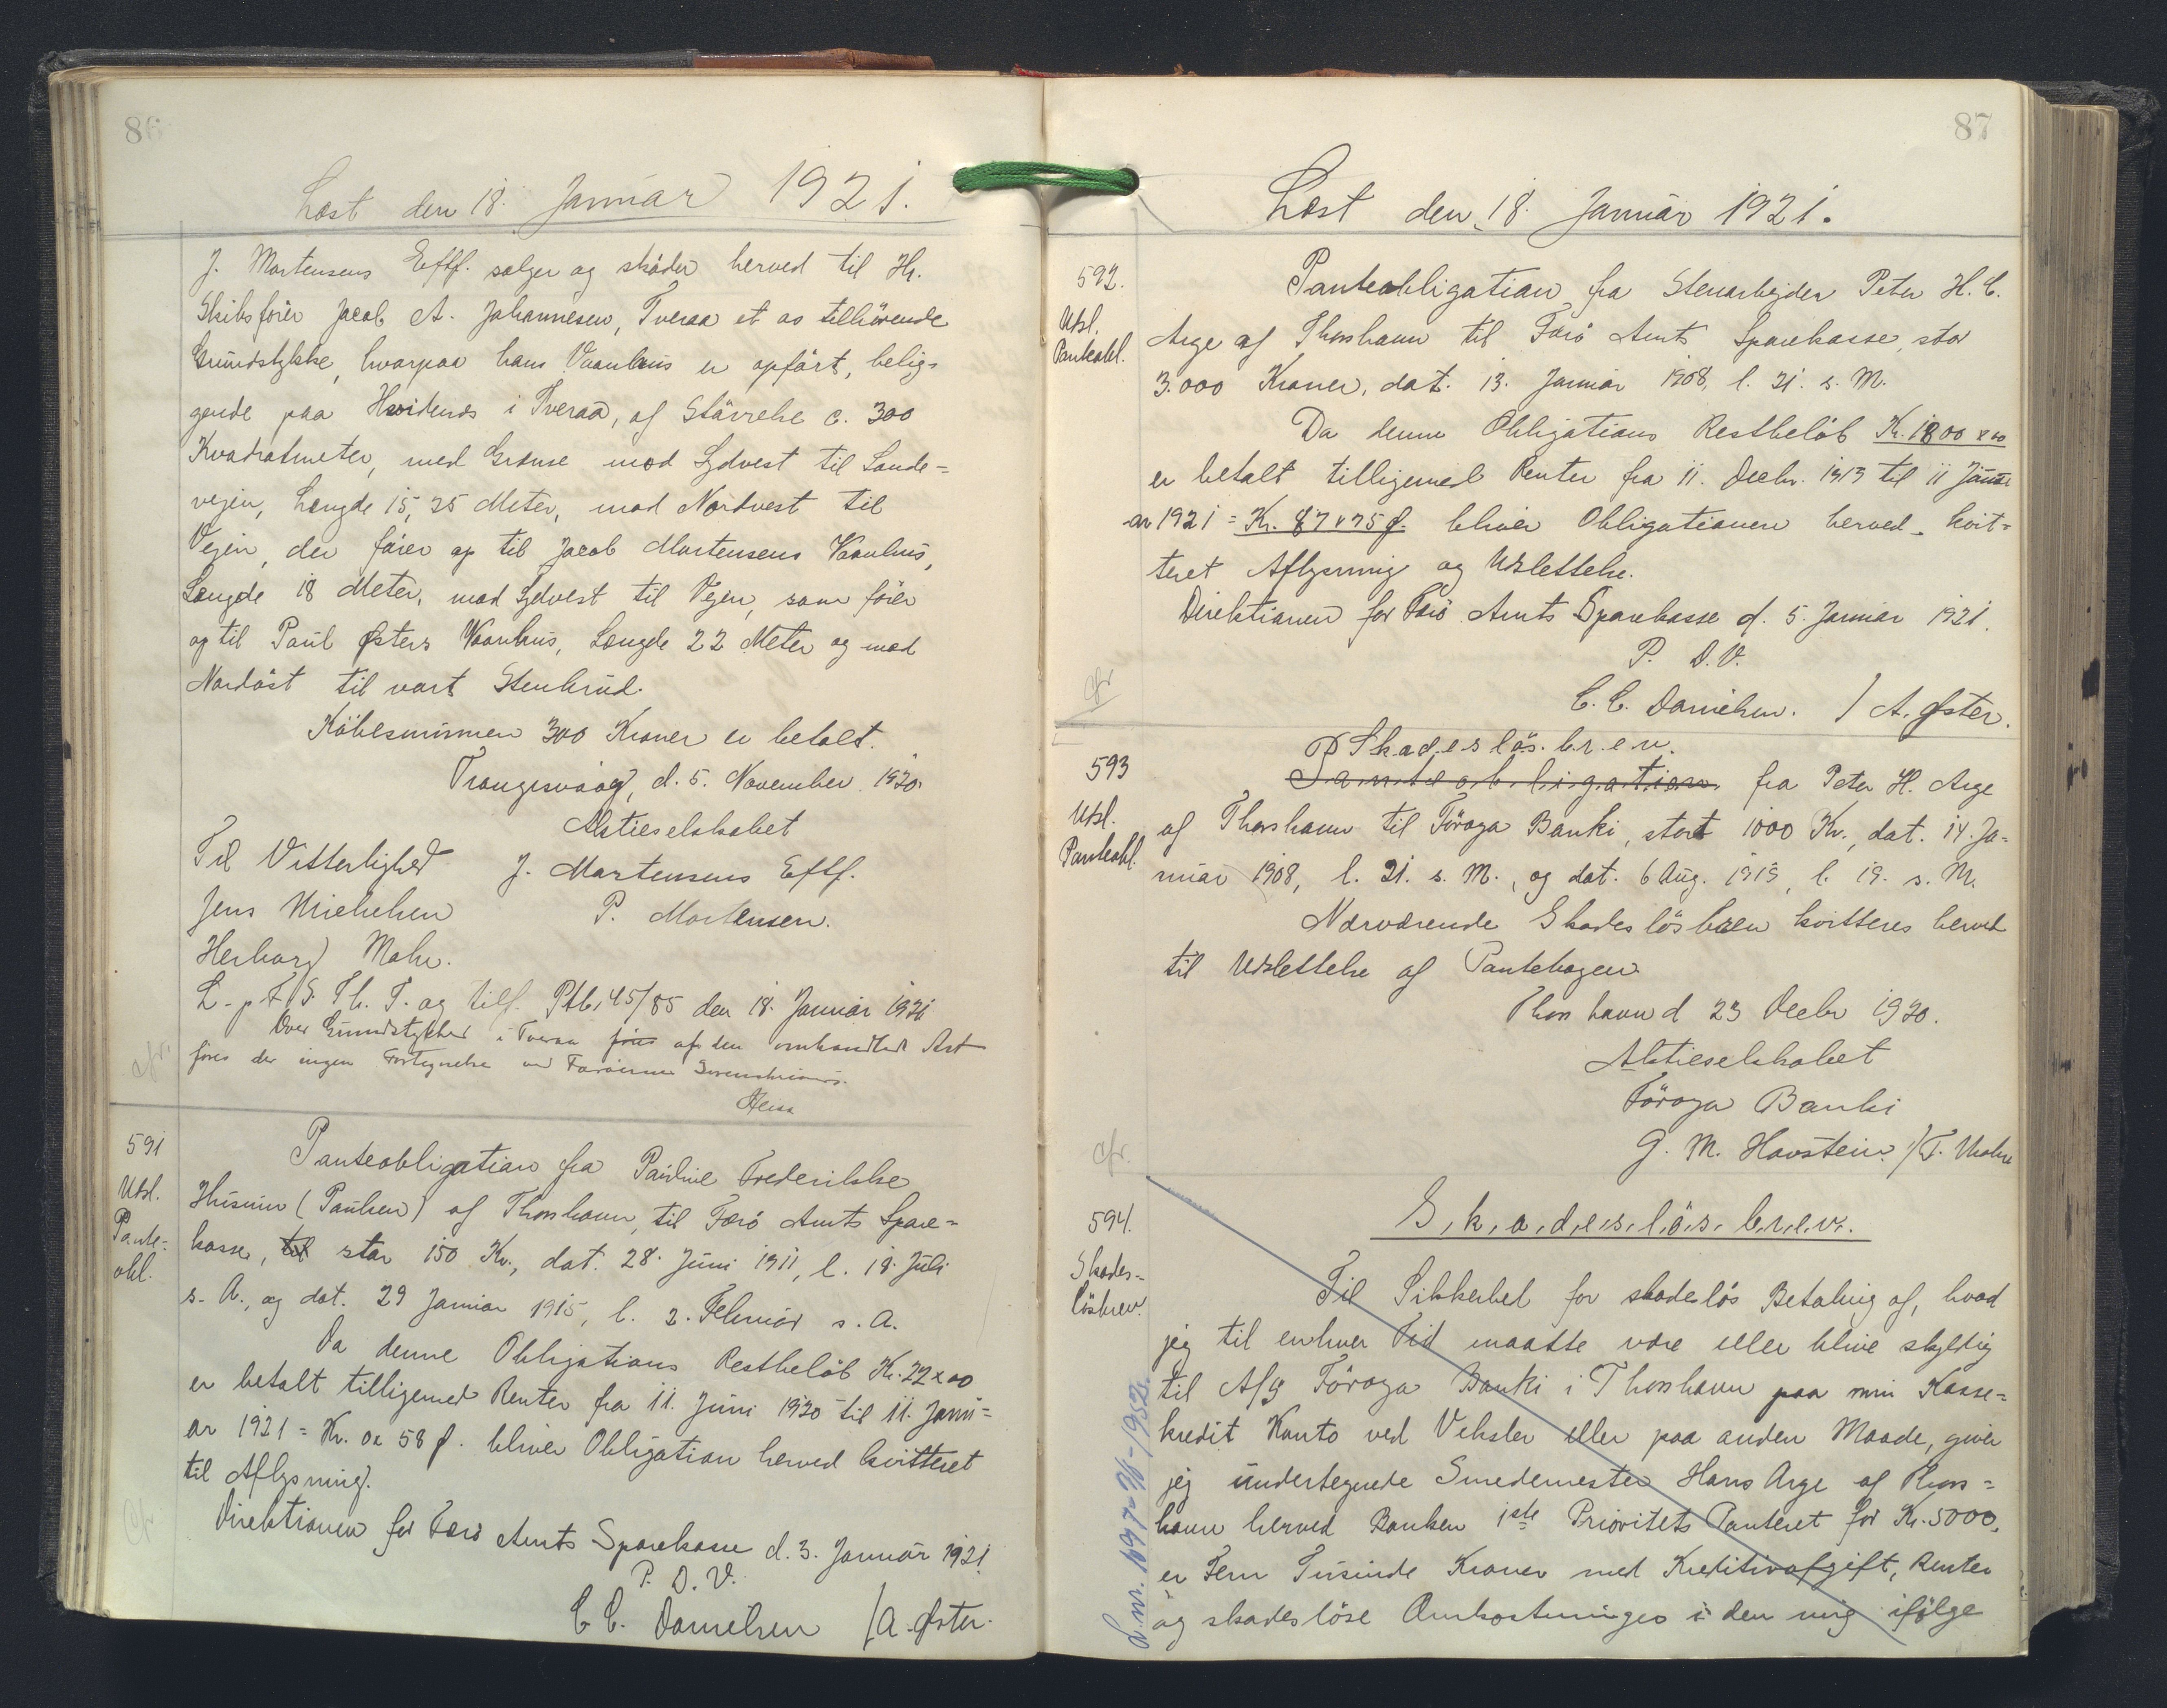 86
Læst den 18. Januar 1921.
J. Mortensens Eftf. sælger og skøder herved til Hr.
Skibsfører Jacob A. Johannesen, Tveraa et os tilhørende
Grundstykke, hvorpaa hans Vaanhus er opført, belig=
gende paa i Tveraa, af Størrelse c. 300
Kvadratmeter, med Grænse mod Sydvest til Lande=
vejen, Længde 15,25 Meter, mod Nordvest til
Vejen, der fører op til Jacob Mortensens Vaanhus,
Længde 18 Meter, mod Sydvest til Vejen, som fører
op til Poul Østers Vaanhus, Længde 22 Meter og mod
Nordøst til vort Stenbrud.
Købesummen 300 Kroner er betalt.
Trangisvaag, d. 5. November 1920.
Aktieselskabet
Til Vitterlighed J. Mortensens Eftf.
Jens Michelsen P. Mortensen.
Herborg Mohr.
L. p. F. S. Th. T. og tilf. Ptb. 45/85 den 18. Januar 1921
Over Grundstykker i Tveraa føres af den omhandlede Art
føres der ingen Fortegnelse ved Færøernes Sorenskriveri.
cfr.
591
Udsl.
Pante=
obl.
Panteobligation fra Pauline Frederikke
Husum (Poulsen) af Thorshavn, til Færø Amts Spare=
kasse, til stor 150 Kr., dat. 28. Juni 1911, l. 18. Juli
s. A., og dat. 29 Januar 1915, l. 2. Februar s. A.
Da denne Obligations Restbeløb Kr. 22 x 00
er betalt tilligemed Renter fra 11. Juni 1920 til 11. Janu=
ar 1921 = Kr. 0x 58 ø. bliver Obligation herved kvitteret
til Aflysning.
Direktionen for Færø Amts Sparekasse d. 3. Januar 1921
P. D. V.
C. C. Danielsen / A. Øster.
cfr
87
Læst den 18. Januar 1921.
592.
Udsl.
Panteobl.
Panteobligation fra Stenarbejder Peter H. C.
Arge af Thorshavn til Færø Amts Sparekasse, stor
3.000 Kroner, dat. 13. Januar 1908, l. 21. s. M.
Da denne Obligations Restbeløb Kr. 1800 x 00
er betalt tilligemed Renter fra 11. Decbr. 1913 til 11 Janu
ar 1921 = Kr. 87 x 75 ø. bliver Obligationen herved kvit=
teret Aflysning og Udslettelse.
Direktionen for Færø Amts Sparekasse d. 5. Januar 1921.
P. D. V.
C. C. Danielsen. / A. Øster.
cfr
593
Udsl.
Panteobl.
Skadesløsbrev.
Panteobligation fra Peter H. Arge
af Thorshavn til Föroya Banki, stort 1000 Kr., dat. 14. Ja=
nuar 1908, l. 21. s. M., og dat. 6 Aug. 1919, l. 19. s. M.
Nærværende Skadesløsbrev kvitteres herved
til Udslettelse af Pantebogen.
Thorshavn d 23 Decbr 1920.
Aktieselskabet
Föroya Banki
G. M. Havsteen / T. Mohr
cfr.
594.
Skades=
løsbrev.
Skadesløsbrev.
Til Sikkerhed for skadesløs Betaling af, hvad
jeg til enhver Tid maatte være eller blive skyldig
til A/S Föroya Banki i Thorshavn paa min Kasse=
kredit Konto ved Veksler eller paa anden Maade, giver
jeg undertegnede Smedemester Hans Arge af Thors=
havn herved Banken 1ste Prioritets Panteret for Kr. 5000,
er Fem Tusinde Kroner med Kreditivafgift, Renter
og skadesløse Omkostninger i den mig ifølge